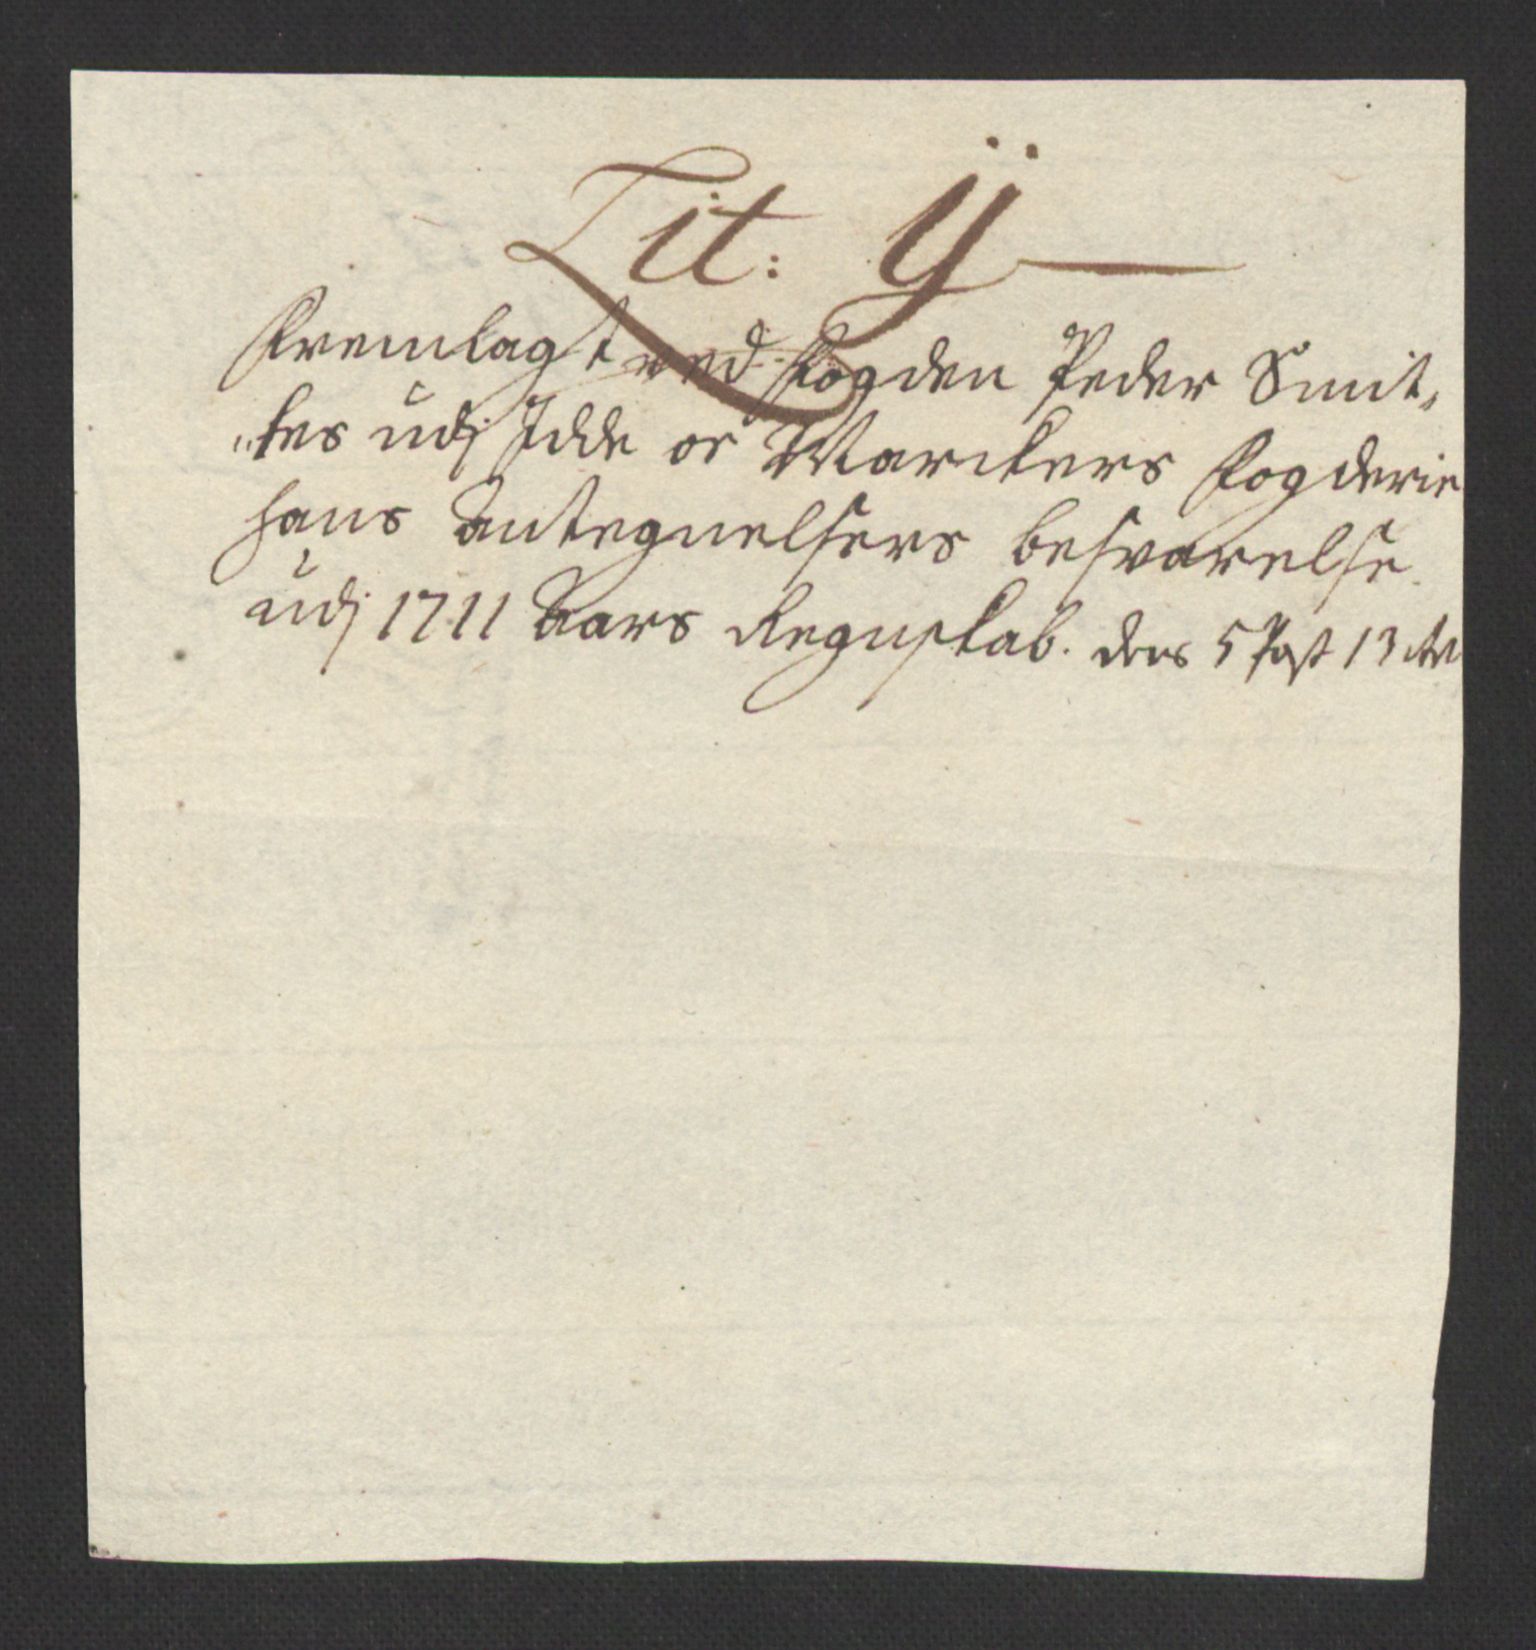 Lit: Ÿ
Fremlagt ved Fogden Peder Smit,
"tes udj Idde oc Marckers Fogderie
hans Antegnelsers besvarelse
udj 1711 Aars Regnskab. dens 5 Post 13